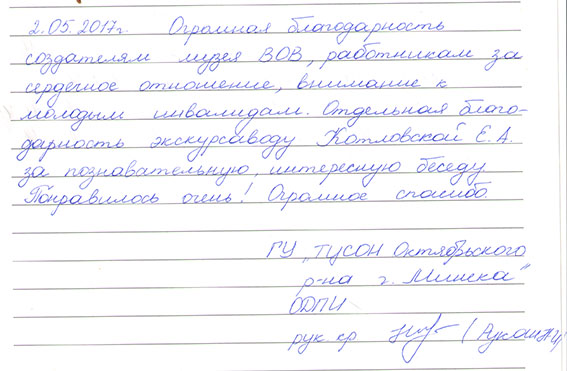 2.05.2017г. Огромная благодарность
создателям музея ВОВ, работникам за
сердечное отношение, внимание к
молодым инвалидам. Отдельная благо-
дарность экскурсаводу Котловской Е.А.
за познавательную, интересную беседу
Понравилось очень! Огромное спасибо.
ГУ „ТЦСОН Октябрьского
р-на г. Минска"
ОДПИ
рук. кр